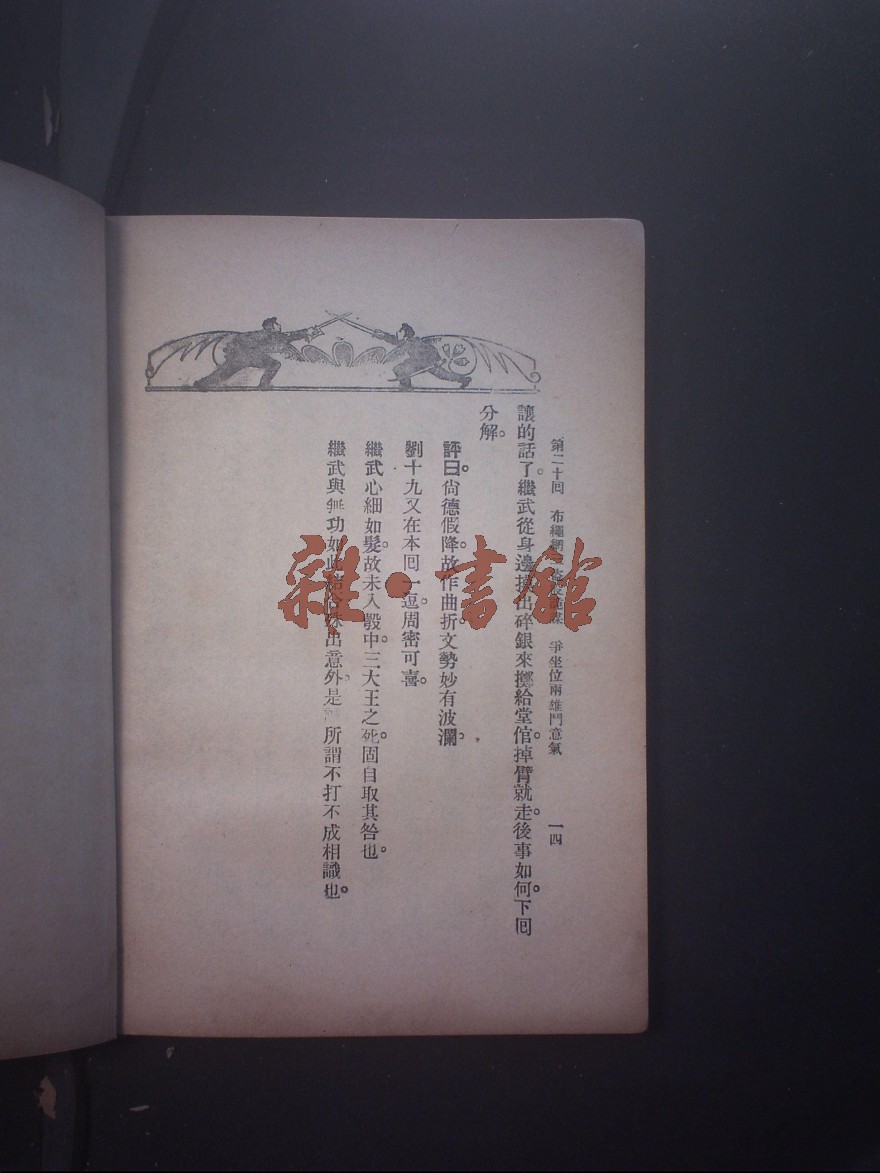 第二十回 布繩網 爭坐位兩雄鬥意氣 一四
讓的話了。繼武從身邊摸出碎銀來擲給堂倌。掉臂就走。後事如何。下回
分解。
評曰。尙德假降。故作曲折。文勢妙有波瀾。
劉十九又在本回一逗。周密可喜。
繼武心細如髮。故未入彀中。三大王之死。固自取其咎也。
繼武與無功如此結合。殊出意外。是 所謂不打不成相識也。
雜·書館